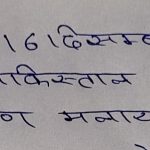 16 दिसम्ब
ाकिस्तान
ण मनाय